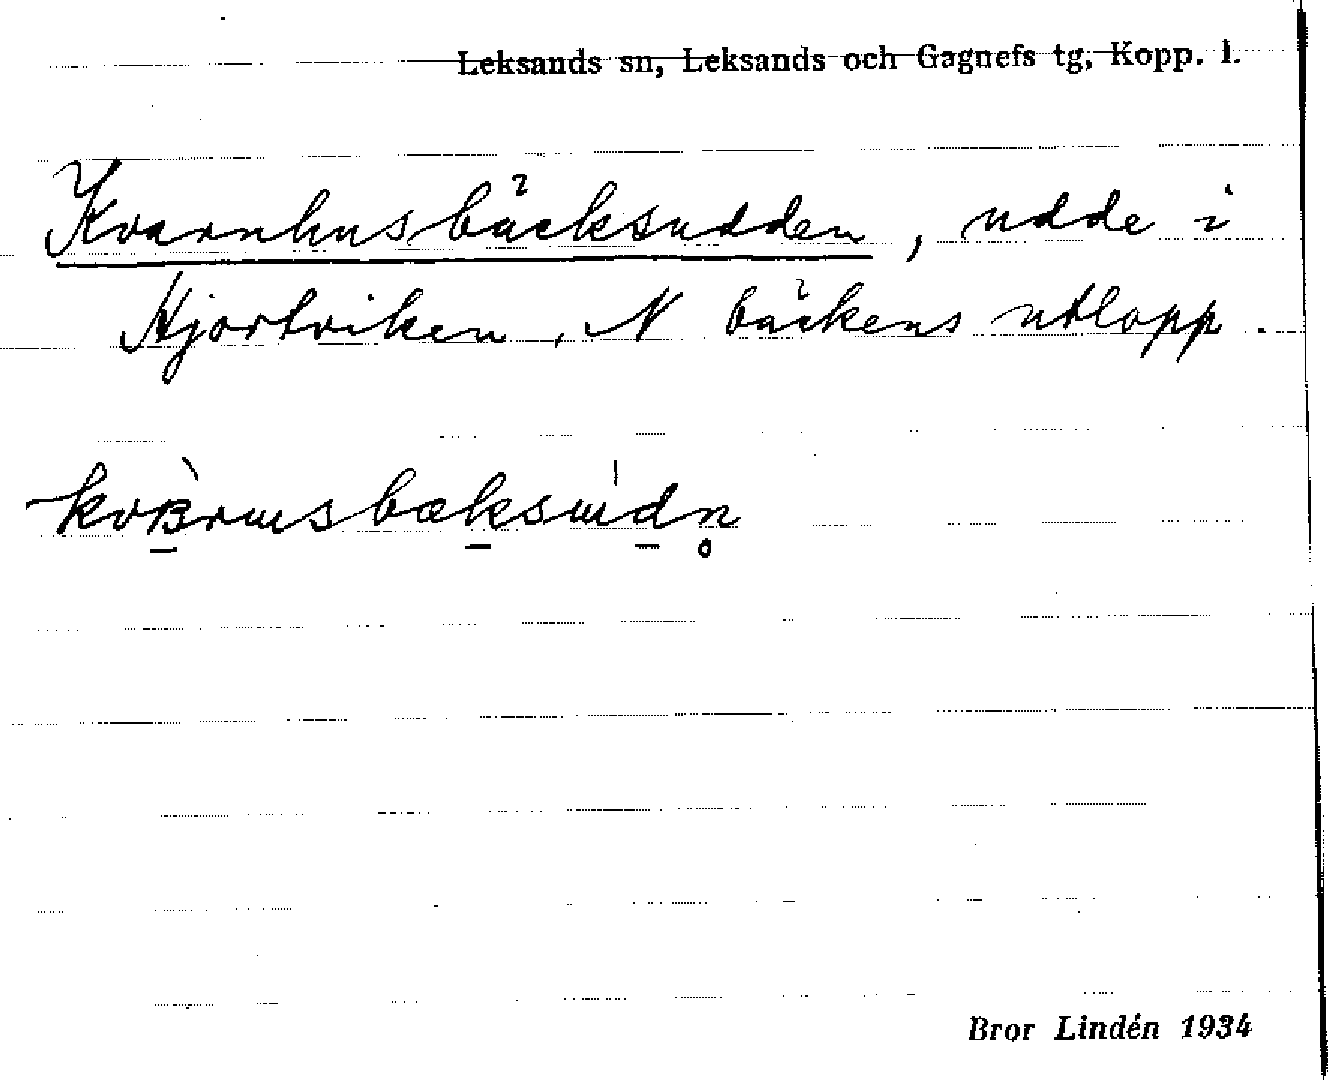 Leksands sn, Leksands och Gagnefs tg, Kopp. l.
Kvarnhusbäcksudden, udde i
Hjortviken, N bäckens utlopp.
Bror Lindén 1934